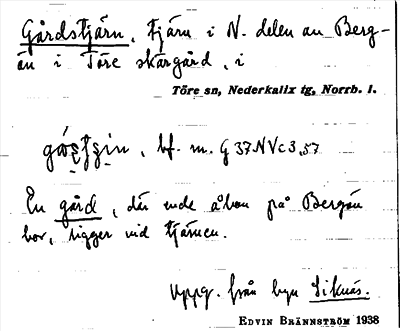 Gårdstjärn, tjärn i N. delen av Berg-
ön i Töre skärgård, i
Töre sn, Nederkalix tg, Norrb. l.
bf. m. G 37 N V c 3,57
En gård, där ende åbon på Bergön
bor, ligger vid tjärnen.
Uppg. från byn Siknäs.
EDVIN BRÄNNSTRÖM 1938